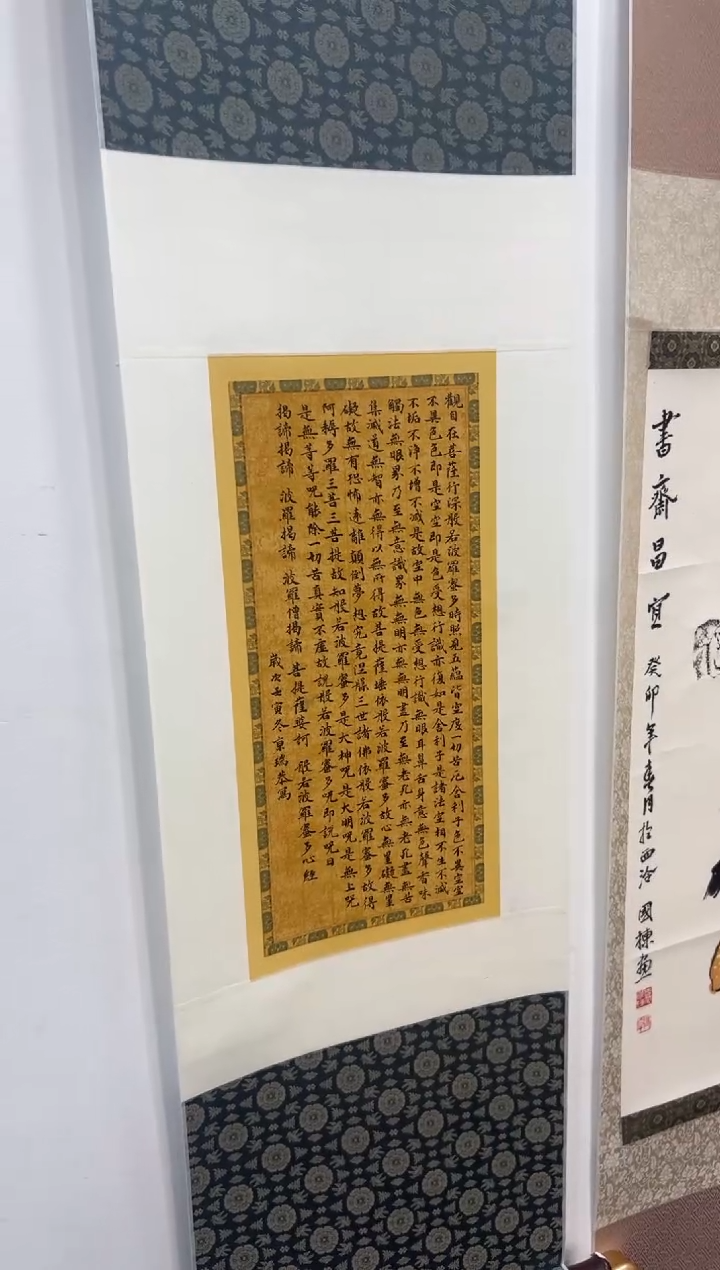 觀自在菩薩行深般若波羅蜜多時照見五蘊皆空度一切苦厄舍利子色不異空空
不異色色即是空空即是色受想行識亦復如是舍利子是諸法空相不生不滅
不垢不淨不增不減是故空中無色無受想行識無眼耳鼻舌身意無色聲香味
觸法無眼界乃至無意識界無無明亦無無明盡乃至無老死亦無老死盡無苦
集滅道無智亦無得以無所得故菩提薩埵依般若波羅蜜多故心無罣礙無罣
礙故無有恐怖遠離顛倒夢想究竟涅槃三世諸佛依般若波羅蜜多故得
阿耨多羅三藐三菩提故知般若波羅蜜多是大神咒是大明咒是無上咒
是無等等咒能除一切苦真實不虛故說般若波羅蜜多咒即說咒曰
揭諦揭諦 波羅揭諦 波羅僧揭諦 菩提薩婆訶 般若波羅蜜多心經
歲次壬寅冬京瑞恭寫
書齋昌宜 癸卯年春月於西泠 國棟畫